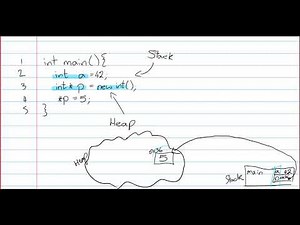 1 int main(){
2 int a = 42;
3 int* p = new int();
4 *p = 5;
5 }
Stack
Heap
Heap
5
Stack
main
a 42